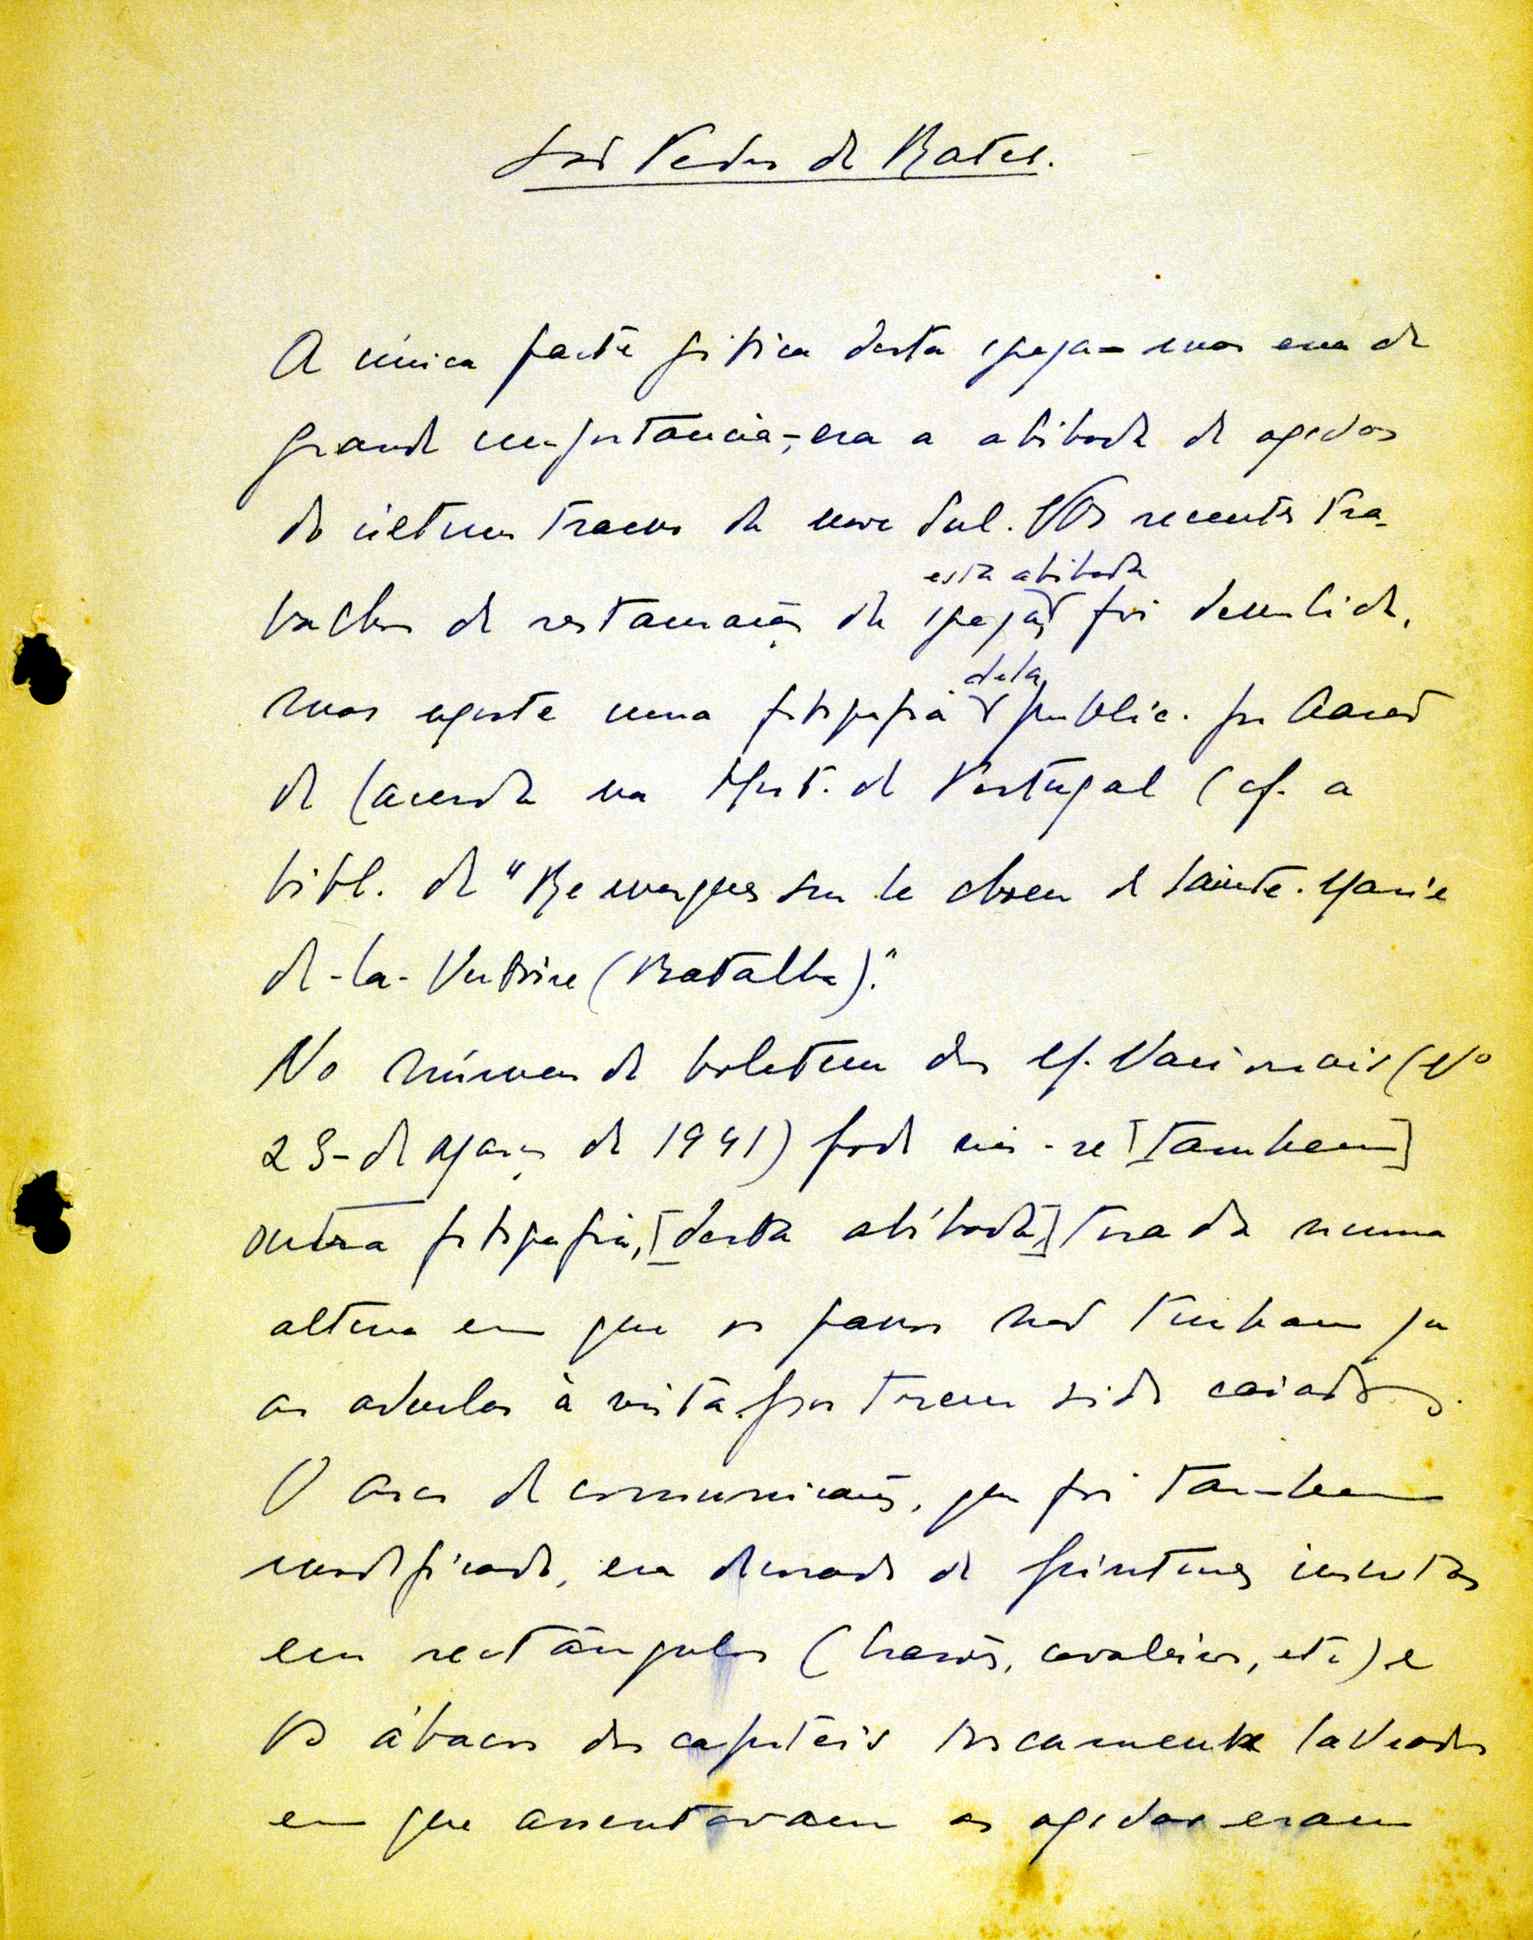 São Pedro de Rates.
A única parte gótica desta igreja - mas era de
grande importancia, - era a abóboda de ogivas
do último tramo da nave sul. Nos recentes tra-
balhos de restauração da igreja esta abóboda foi demolida,
mas existe uma fotografia dela public. por Aarão
de Lacerda na Hist. de Portugal (cf. a
bibl. de "Remarques sur le choeur de Sainte-Marie
de-la-Victoire (Batalha)."
No número do boletim dos M. Nacionais (Nº
23 - de Março de 1941) pode vêr-se [tambem]
outra fotografia, [desta abóboda,] tirada numa
altura em que os panos não tinham
as aduelas à vista por terem sido caiados.
O arco de comunicação, que foi tambem
modificado, era decorado de pinturas inscritas
em rectângulos (brasões, cavaleiros, etc) e
os ábacos dos capitéis toscamente lavrados
em que assentavam as ogivas eram